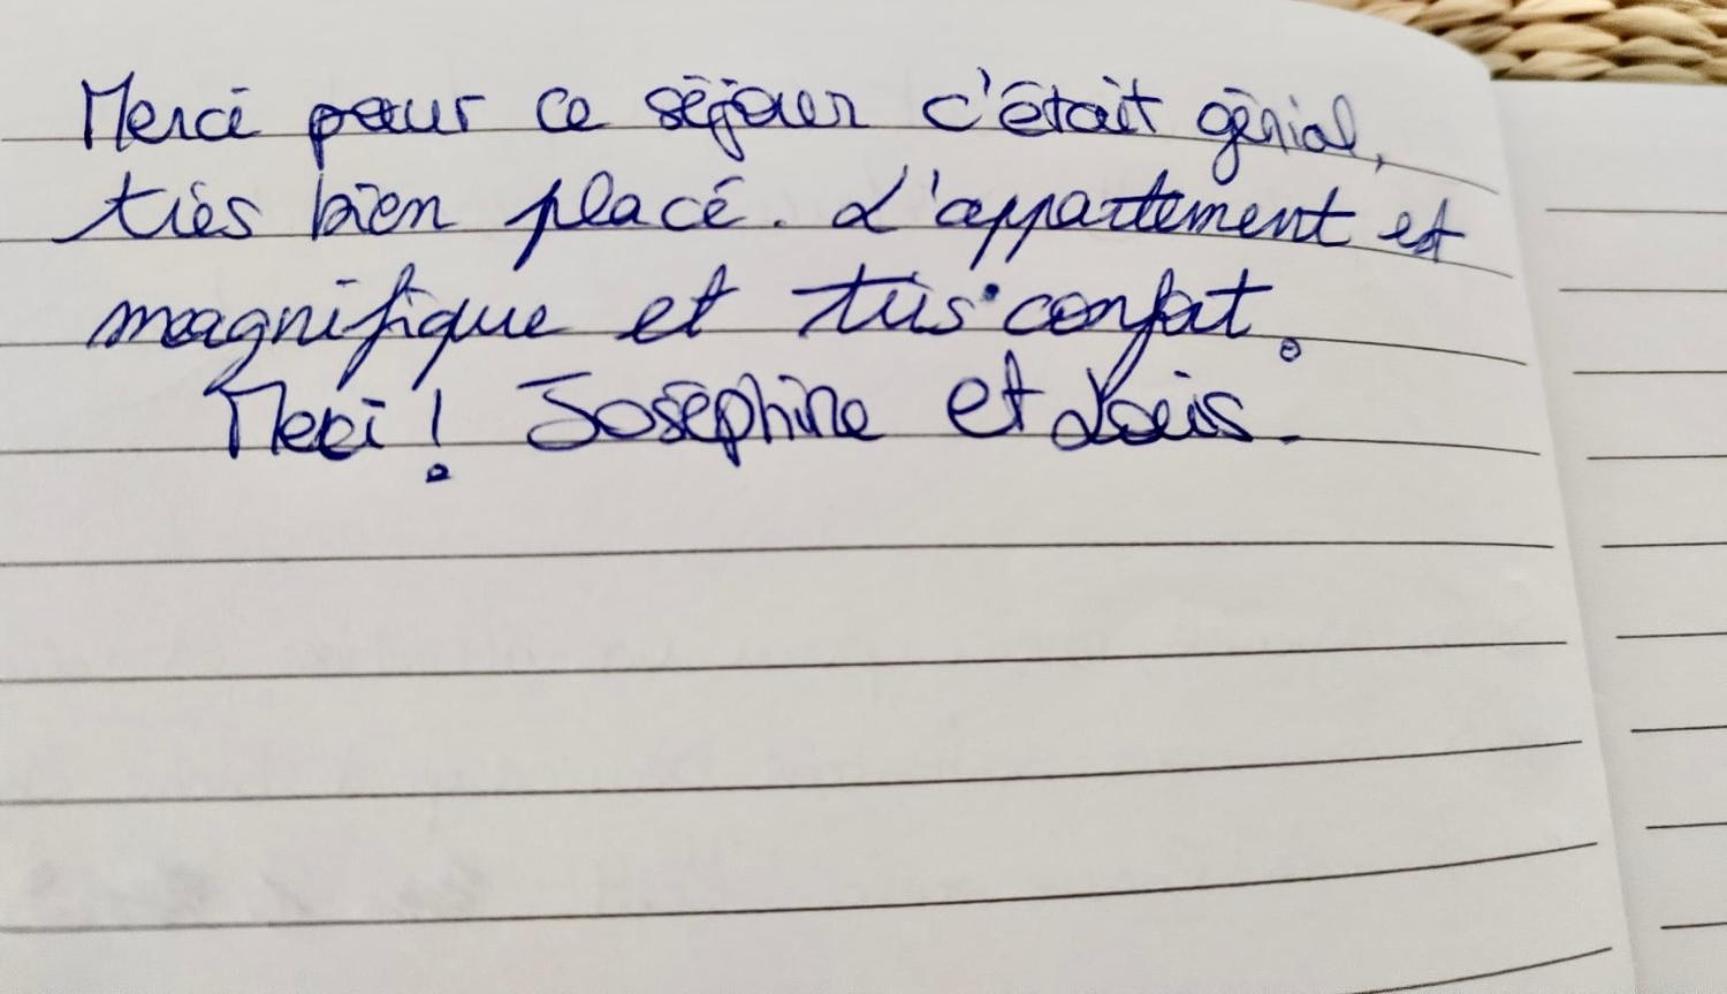 Merci pour ce séjour c'était génial,
très bien placé. L'appartement est
magnifique et très confort.
Merci ! Joséphine et Louis.